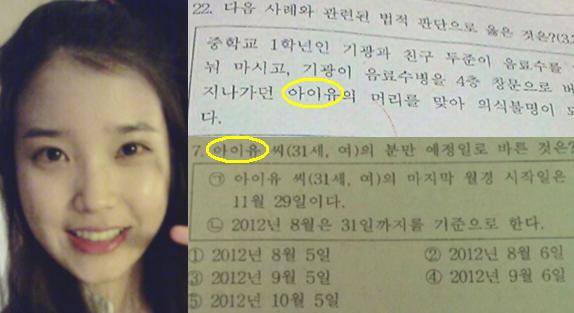 22. 다음 사례와 관련된 법적 판단으로 옳은 것은?(3.
중학교 1학년인 기광과 친구 두준이 음료수를
눠 마시고, 기광이 음료수병을 4층 창문으로 버
지나가던 아이유의 머리를 맞아 의식불명이 되
다.
7. 아이유 씨(31세, 여)의 분만 예정일로 바른 것은?
㉠ 아이유 씨(31세, 여)의 마지막 월경 시작일은
11월 29일이다.
㉡ 2012년 8월은 31일까지를 기준으로 한다.
① 2012년 8월 5일 ② 2012년 8월 6일
③ 2012년 9월 5일 ④ 2012년 9월 6일
⑤ 2012년 10월 5일